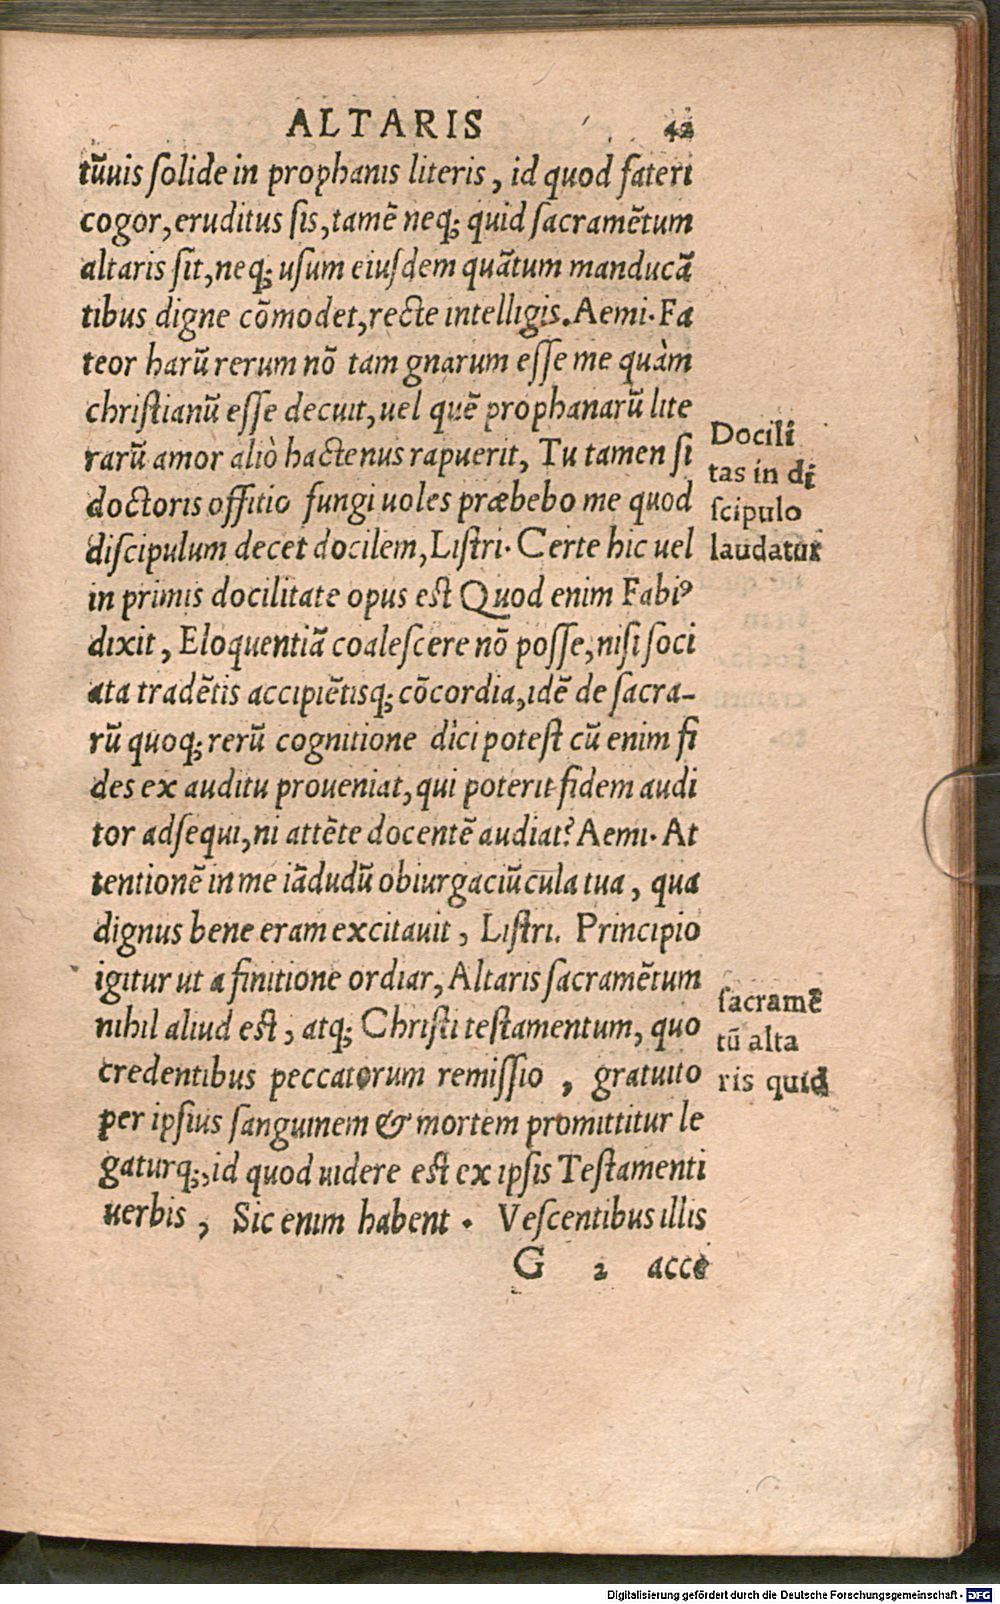 ALTARIS 42
tũuis ſolide in prophanis literis, id quod fateri
cogor, eruditus ſis, tamẽ neq; quid ſacramẽtum
altaris ſit, neq; uſum eiuſdem quãtum manducã
tibus digne cõmodet, recte intelligis. Aemi. Fa
teor harũ rerum nõ tam gnarum eſſe me quàm
chriſtianũ eſſe decuit, uel quẽ prophanarũ lite
rarũ amor aliò hactenus rapuerit, Tu tamen ſi
doctoris offitio fungi uoles præbebo me quod
diſcipulum decet docilem, Liſtri. Certe hic uel
in primis docilitate opus eſt Quod enim Fabiꝰ
dixit, Eloquentiã coaleſcere nõ poſſe, niſi ſoci
ata tradẽtis accipiẽtisq; cõcordia, idẽ de ſacra-
rũ quoq; rerũ cognitione dici poteſt cũ enim fi
des ex auditu proueniat, qui poterit fidem audi
tor adſequi, ni attẽte docentẽ audiat? Aemi. At
tentionẽ in me iãdudũ obiurgaciũcula tua, qua
dignus bene eram excitauit, Liſtri. Principio
igitur ut a finitione ordiar, Altaris ſacramẽtum
nihil aliud eſt, atq; Chriſti teſtamentum, quo
credentibus peccatorum remiſſio, gratuito
per ipſius ſanguinem & mortem promittitur le
gaturq;, id quod uidere eſt ex ipſis Teſtamenti
uerbis, Sic enim habent. Veſcentibus illis
G 2 acce
Docili
tas in di
ſcipulo
laudatur
ſacramẽ
tũ alta
ris quid
Digitalisierung gefördert durch die Deutsche Forschungsgemeinschaft - DFG